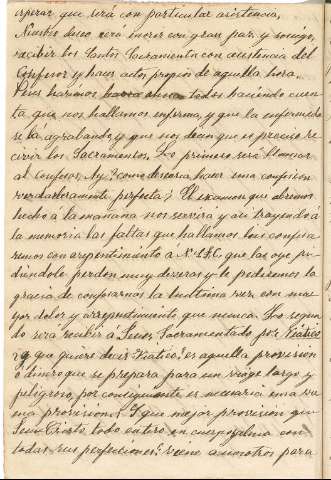 esperar que será con particular asistencia,
Nuestro deseo será morir con gran paz y sosiego,
recibir los Santos Sacramentos con asistencia del
Confesor y hacer actos propios de aquella hora.
Pues haremos ahora todos haciendo cuen-
ta que nos hallamos enferma, y que la enfermedad
se la agrabando, y que nos decian que es preciso re-
civir los Sacramentos. Lo primero será llamar
al confesor, Ay! como deseara hacer una confesion
verdaderamente perfecta? El examen que abremos
hecho á la mañana nos servira y asi trayendo á
la memoria las faltas que hallamos
con arrepentimiento á N. S. J. C. que las oye pi-
diendole perdon muy deveras y le pederemos la
gracia de confesarnos la hultima vez, con ma-
yor dolor y arrependimiento que nunca. Lo segun-
do será recibir á Señor Sacramentado por Viatico
y que quiere decir Viatico? es aquella provision
ó dinero que se prepara para un viage largo y
peligroso, por consiguiente es necesaria una bu-
ena provision. Y que mejor provision que
Jesu Cristo, todo entero en cuerpo y alma con
todas sus perfecciones? viene a nosotros para